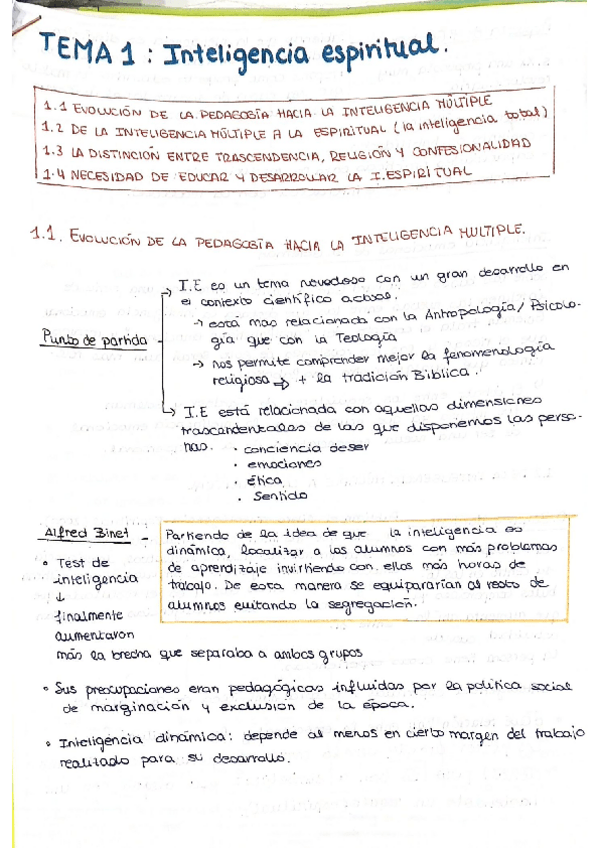 TEMA 1 : Inteligencia espiritual.
1.1 EVOLUCIÓN DE LA PEDAGOGÍA HACIA LA INTELIGENCIA MÚLTIPLE
1.2 DE LA INTELIGENCIA MÚLTIPLE A LA ESPIRITUAL (la inteligencia total)
1.3 LA DISTINCIÓN ENTRE TRASCENDENCIA, RELIGIÓN Y CONFESIONALIDAD
1.4 NECESIDAD DE EDUCAR Y DESARROLLAR LA I.ESPIRITUAL
1.1. EVOLUCIÓN DE LA PEDAGOGÍA HACIA LA INTELIGENCIA MULTIPLE.
Punto de partida
→ I.E es un tema novedoso con un gran desarrollo en
el contexto científico actual.
→ está mas relacionada con la Antropología/Psicolo-
gía que con la Teología
→ nos permite comprender mejor la fenomenología
religiosa → + la tradición Bíblica.
→ I.E está relacionada con aquellas dimensiones
trascendentales de las que disponemos las perso-
nas.
· conciencia deser
· emociones
· Ética
· Sentido
Alfred Binet -
Partiendo de la idea de que la inteligencia es
dinámica, localizar a los alumnos con más problemas
de aprendizaje invirtiendo con ellos más horas de
trabajo. De esta manera se equipararían al resto de
alumnos evitando la segregación.
• Test de
inteligencia
↓
finalmente
aumentaron
más la brecha que separaba a ambos grupos
• Sus preocupaciones eran pedagógicas influidas por la política social
de marginación y exclusión de la época.
• Inteligencia dinámica: depende al menos en cierto margen del trabajo
realizado para su desarrollo.